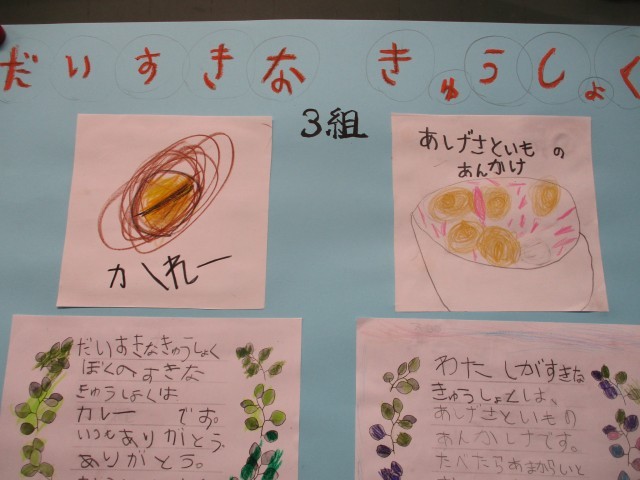 だいすきな きゅうしょく
3組
かれー
あしげさといもの
あんかけ
だいすきなきゅうしょく
ぼくのすきな
きゅうしょくは
カレーです。
いつもありがとう。
ありがとう。
わたしがすきな
きゅうしょくは、
あしげさといもの
あんかけです。
たべたらあまからいと